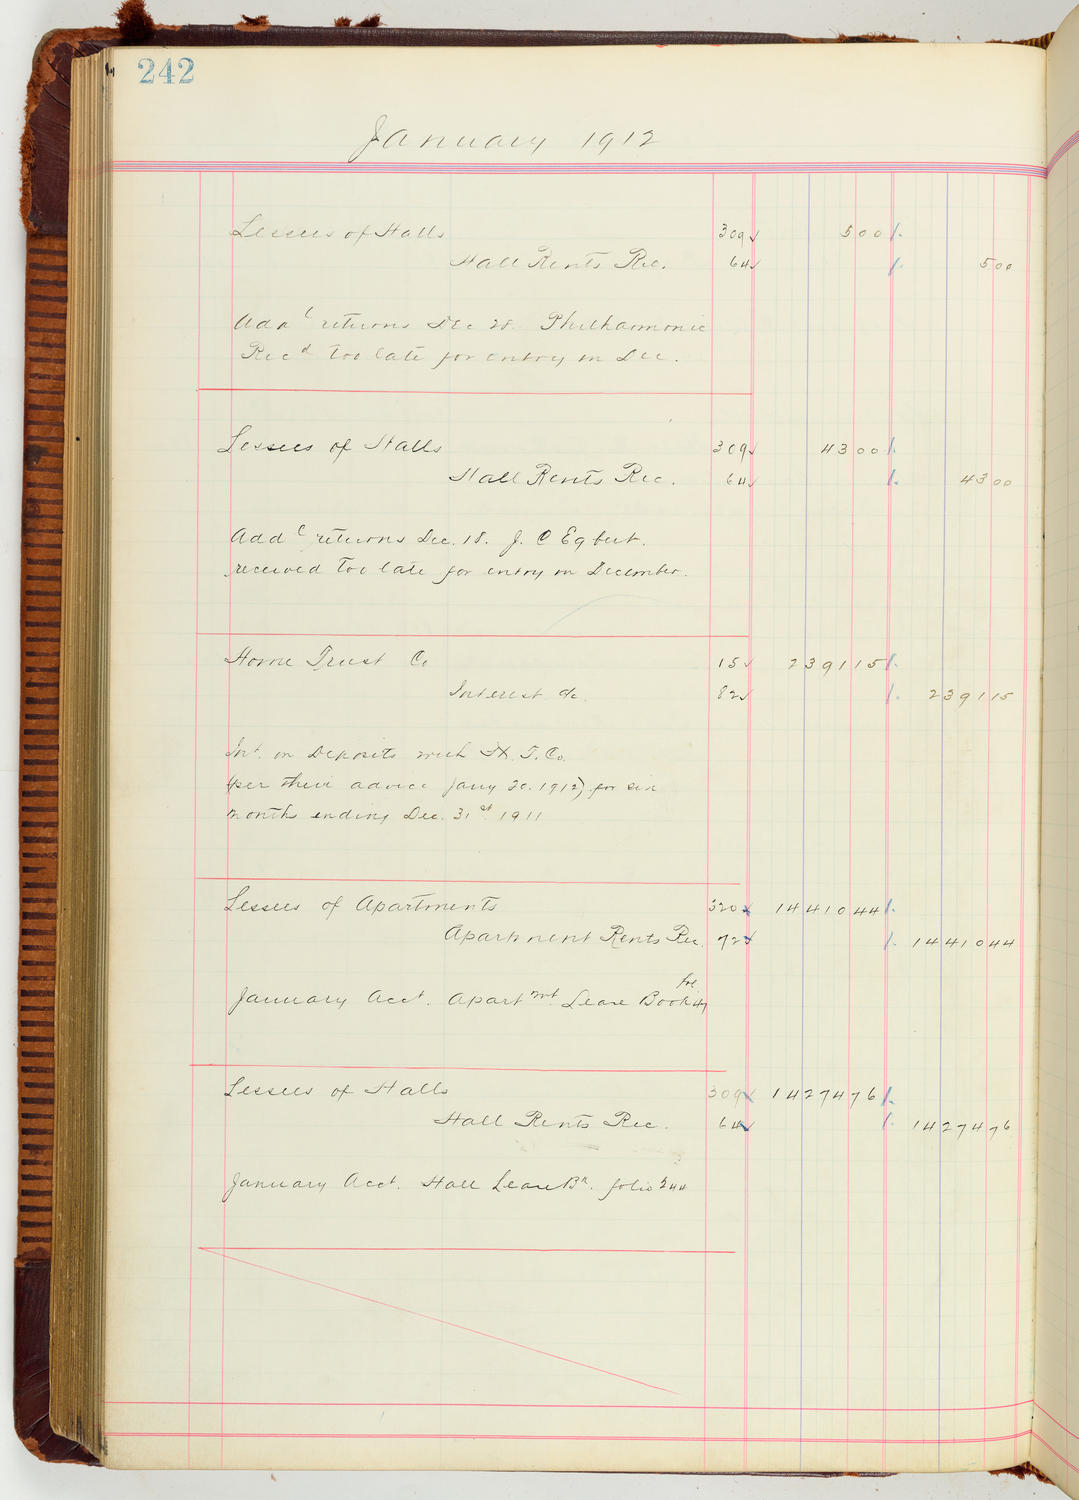 242
January 1912
Lessees of Halls 309 ✓ 500
Hall Rents Rec. 64 ✓ 500
Add<sup>l</sup> returns Dec 28. Philharmonic
Rec<sup>d</sup> too late for entry in Dec.
Lessees of Halls 309 ✓ 4300
Hall Rents Rec. 64 ✓ 4300
Add<sup>l</sup> returns Dec. 18. J. C Egbert.
received too late for entry in December.
Home Trust Co 15 ✓ 239115
Interest a/c 82 ✓ 239115
Int. on Deposits with H. T. Co.
(per their advice Jany 20. 1912) for six
months ending Dec. 31<sup>st</sup> 1911
Lessees of Apartments 320 1441044
Apartment Rents Rec. 72 1441044
January Acct. Apart<sup>mt</sup> Lease Book fol 41
Lessees of Halls 309 1427476
Hall Rents Rec. 64 1427476
January Acct. Hall Lease B<sup>k</sup>. folio 244